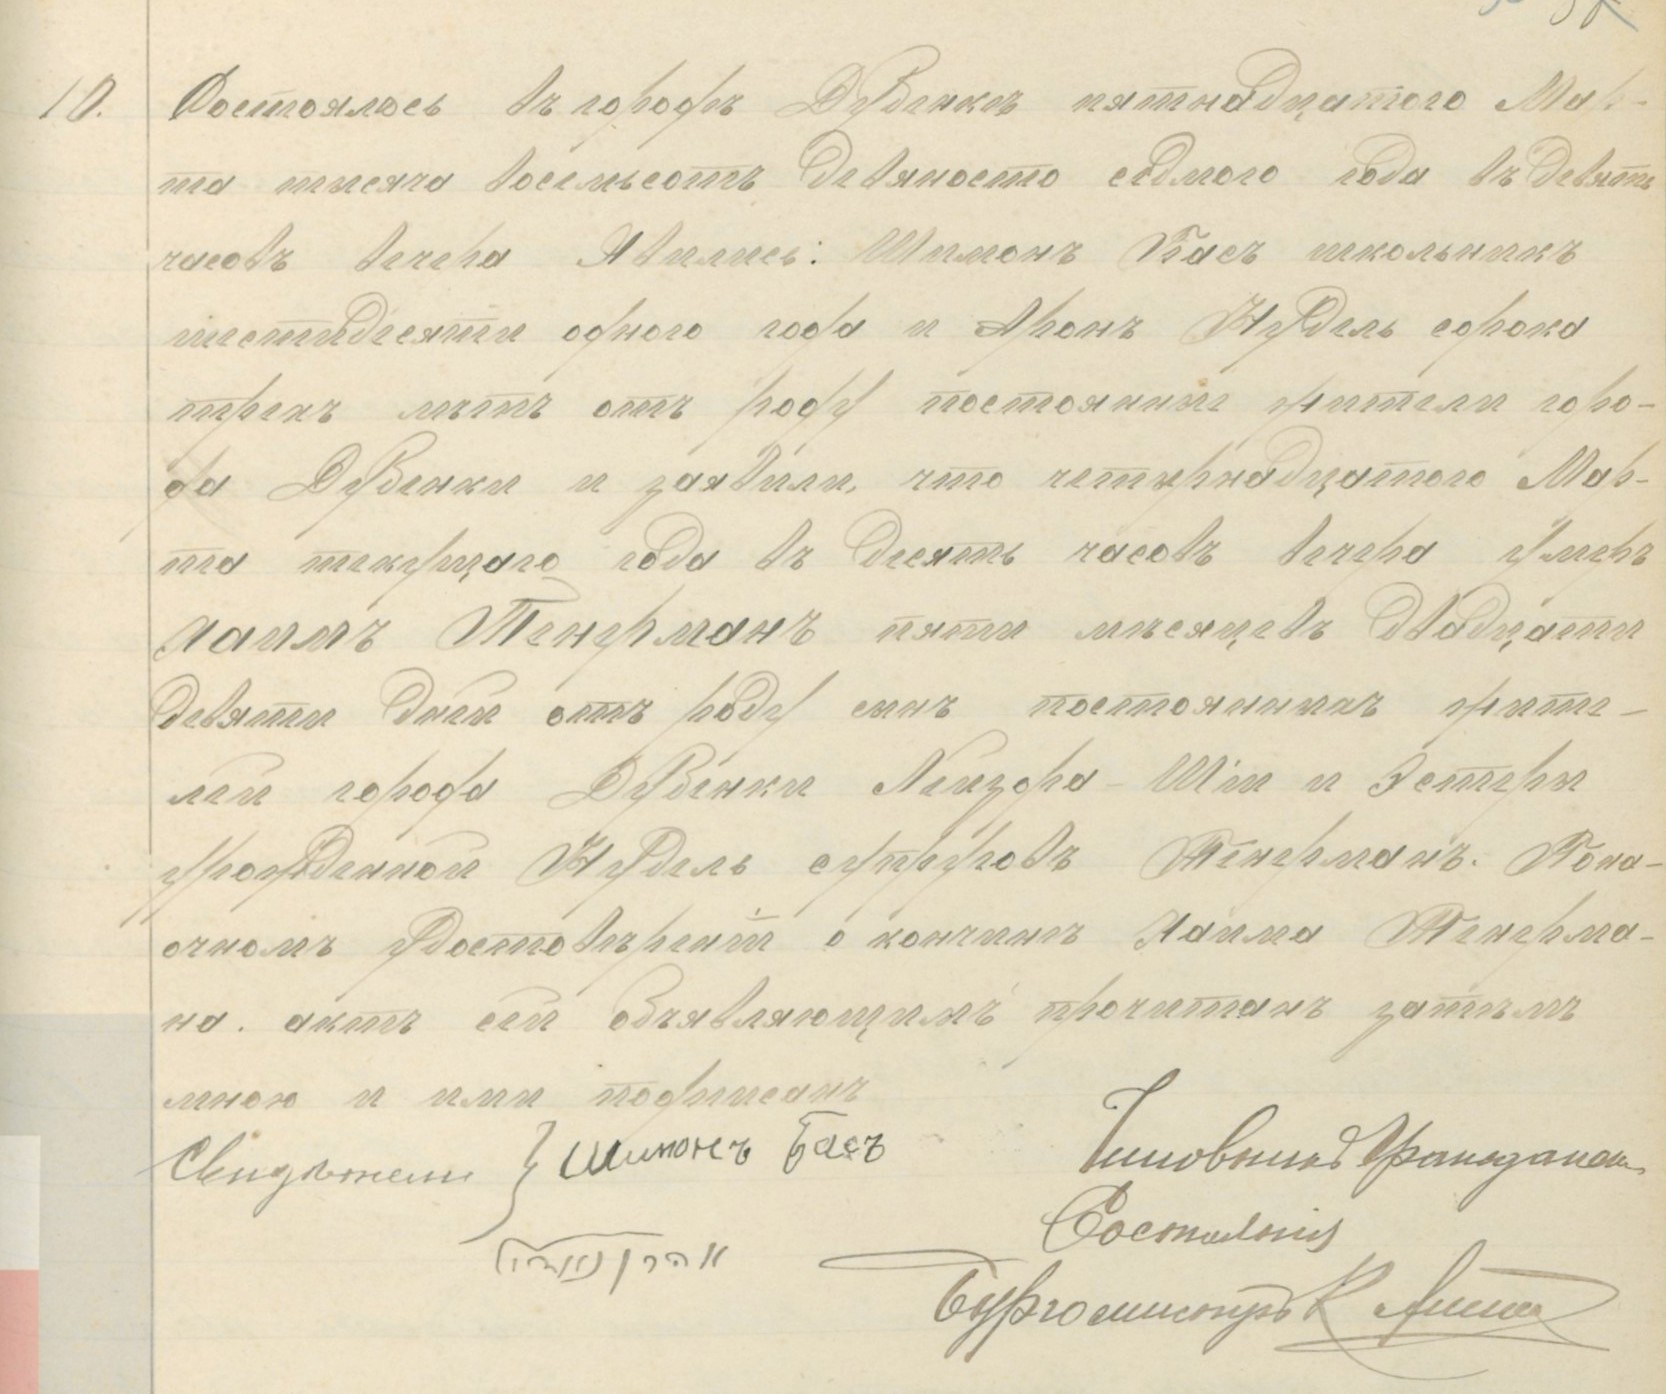 10. Состоялось въ городѣ Дубенкѣ пятнадцатого Мар-
та тысяча восемьсотъ девяносто седмого года въ девять
часовъ вечера Явились: Шимонъ Басъ школьникъ
шестидесяти одного года и Аронъ Нудель сорока
трехъ лѣтъ отъ роду постоянные жители горо-
да Дубенки и заявили, что четырнадцатого Мар-
та текущаго года въ десять часовъ вечера умеръ
Хаимъ Тенерманъ пяти мѣсяцевъ двадцати
девяти дней отъ роду сынъ постоянныхъ жите-
лей города Дубенки Лейзора-Шіи и Эстеры
урожденной Нудель супруговъ Тенерманъ. По на-
очномъ удостовѣреніи о кончинѣ Хаима Тенерма-
на. актъ сей объявляющимъ прочитанъ затѣмъ
мною и ими подписанъ
Свидѣтели } Шимонъ Басъ
אהרן נודיל
Чиновникъ Гражданск.
Состоянія
Бургомистръ К